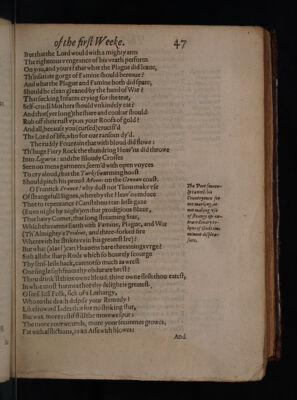 of the first Weeke. 47
But that the Lord would with a mighty arm
The righteous vengeance of his wrath perform
On you, and yours: that what the Plague did leaue,
Th'insatiate gorge of Famine should bereaue?
And what the Plague and Famine both did spare,
Should be clean gleaned by the hand of War?
That sucking Infants crying for the teat,
Self-cruell Mothers should vnkindly eat?
And that (yer long) the share and coultar should
Rub off their rust vpon your Roofs of gold?
And all, because you (cursed) crucifi'd
The Lord of life, who for our ransom dy'd.
The ruddy Fountain that with bloud did flowe:
Th'huge Fiery Rock the thundring Heav'ns did throwe
Into Liguria: and the Bloudy Crosses
Seen on mens garments, seem'd with open voyces
To cry aloud, that the Turks swarming hoast
Should pitch his proud Moons on the Genoan coast.
O Frantick France! why dost not Thou make vse
Of strangefull signes, whereby the Heav'ns induce
Thee to repentance? Canst thou tear-less gaze
(Euen night by night) on that prodigious Blaze,
That hairy Comet, that long streaming Star,
Which threatens Earth with Famine, Plague, and War
(Th'Almighty's Trident, and three-forked fire
Wherewith he strikes vs in his greatest ire)?
But what (alas!) can Heavens bare threatnings vrge?
Sith all the sharp Rods which so hourely scourge
Thy sens-less back, cannot so much as wrest
One single sigh from thy obdurate brest?
Thou drink'st thine owne bloud, thine owne flesh thou eatest,
In what most harms thee thy delight is greatest.
O sens-less Folk, sick of a Lethargy,
Who to the death despise your Remedy!
Like froward Iades that for no striking stur,
But wax more restif still the more we spur:
The more your wounds, more your securenes growes,
Fat with afflictions, as an Asse with blowes:
And
The Poet seuerely taxeth his Countrymen for not marking, or not making vse of strange & extraordinary tokens of Gods imminent displeasure.